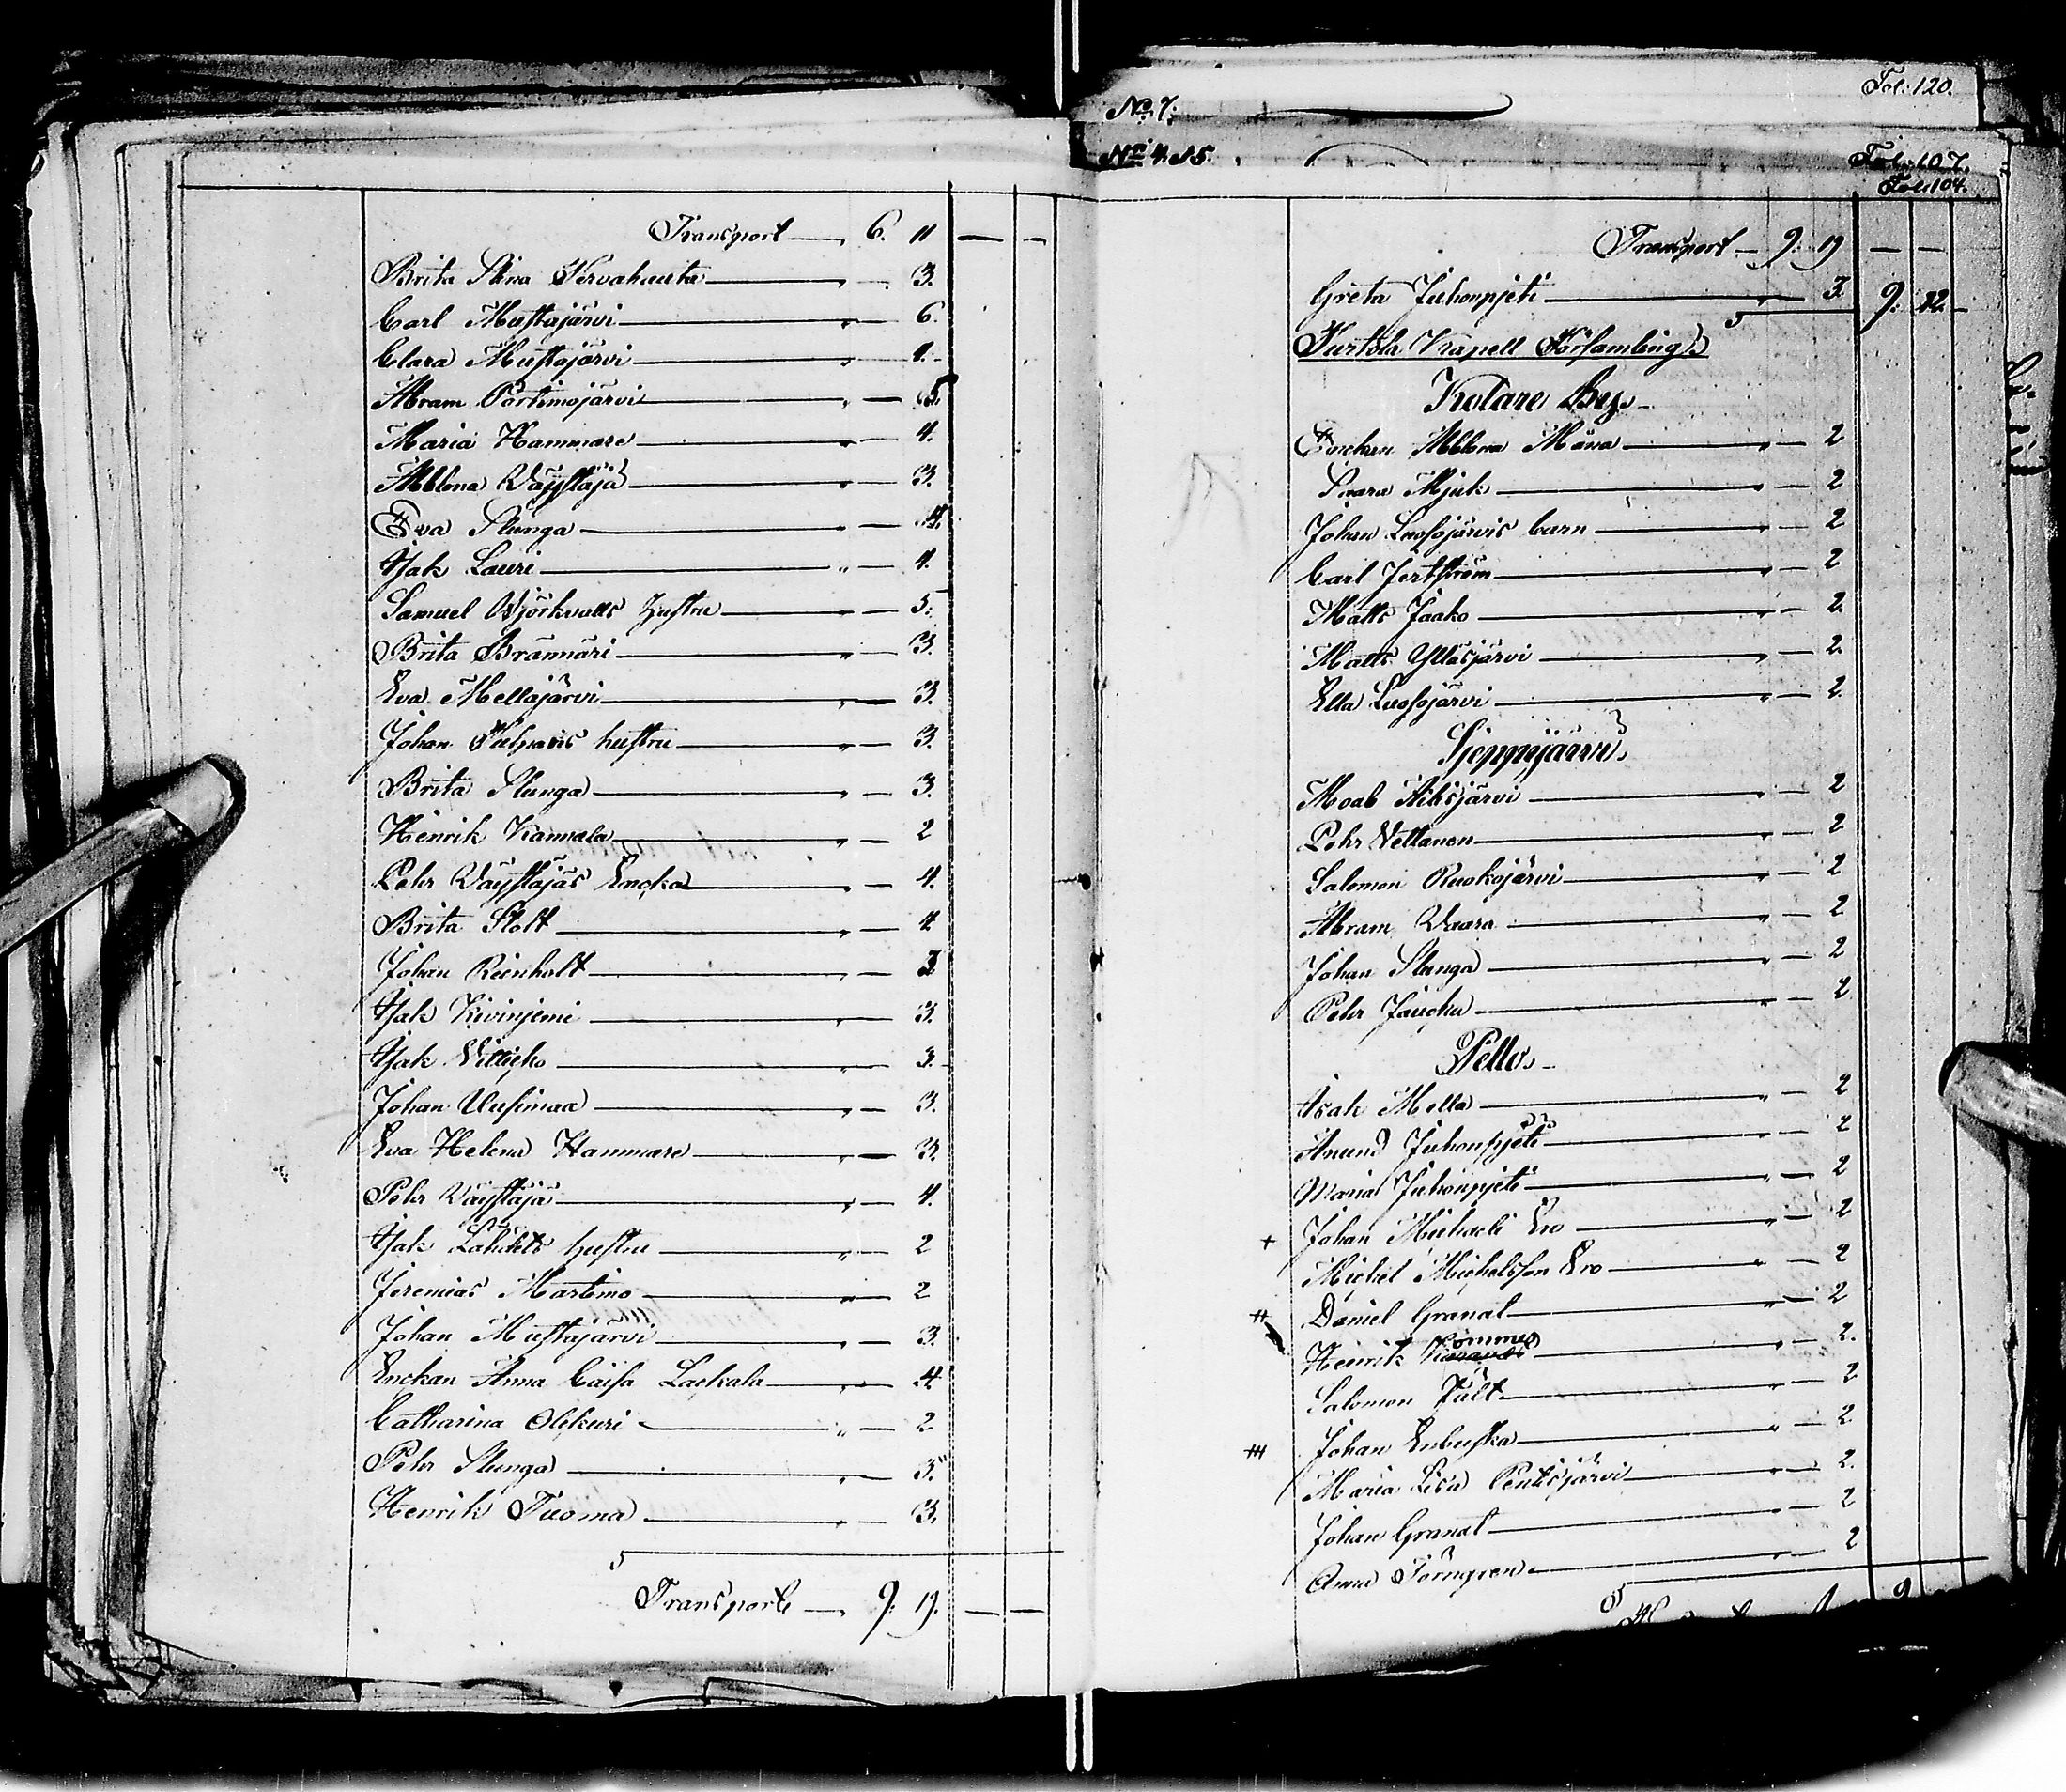 Transport — 6. 11 — —
Brita Stina Tervahauta — " — 3.
Carl Mustajärvi — " — 6.
Clara Mustajärvi — " — 1.
Abram Portimojärvi — " — 5.
Maria Hammare — " — 4.
Ablona Väystäjä — " — 3.
Eva Slunga — " — 4.
Isak Lauri — " — 4.
Samuel Björkvalls hustru — " — 5.
Brita Brännäri — " — 3.
Eva Mellajärvi — " — 3.
Johan hustru — " — 3.
Brita Slunga — " — 3.
Henrik Kannala — " — 2
Pehr Väystäjäs Encka — " — 4.
Brita Stolt — " — 4
Johan Reinholt — " — 3
Isak Kivinjemi — " — 3.
Isak — " — 3.
Johan Uusimaa — " — 3.
Eva Helena Hammare — " — 3.
Pehr Väystäjä — " — 4.
Isak hustru — " — 2
Jeremias Martimo — " — 2
Johan Mustajärvi — " — 3.
Enckan Anna Caisa Laekala — " — 4.
Catharina Olkkuri — " — 2
Pehr Slunga — " — 5.
Henrik Tuoma — " — 3.
Transport — 9. 19. — —
No. 7.
Fol: 120.
No 4. 15.
Fol: 107.
Fol: 104.
Transport — 9. 19 — —
Greta Juhonpjeti — " — 3. 9. 22. —
Turtola Kapell Församling
Kolare By
Enckan Ablona Mäna — " — 2
Mjuk — " — 2
Johan Luosojärvis barn — " — 2
Carl Jertström — " — 2
Matts Jaako — " — 2
Matts Ylläsjärvi — " — 2
Ella Luosojärvi — " — 2
Sieppijärvi
Moab Aihisjärvi — " — 2
Pehr Vettanen — " — 2
Salomon Ruokojärvi — " — 2
Abram Vaara — " — 2
Johan Slunga — " — 2
Pehr Jauchu — " — 2
Pello
Isak Mella — " — 2
Anund Juhonpjeti — " — 2
Maria Juhonpjeti — " — 2
+ Johan Michaeli Ero — " — 2
Michel Michelsson Ero — " — 2
# Daniel Granat — " — 2
Henrik Kömmes — " — 2.
Salomon Fält — " — 2
Johan Enbuska — " — 2
Maria Lisa Pentisjärvi — " — 2.
Johan Granat — " — 2
Anna Törngren — " — 2